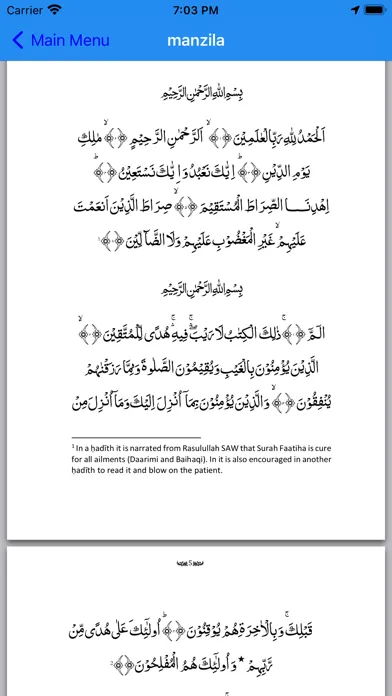 Carrier 7:03 PM
Main Menu manzila
بِسْمِ اللهِ الرَّحْمٰنِ الرَّحِيْمِ
اَلْحَمْدُ لِلّٰهِ رَبِّ الْعٰلَمِيْنَ ﴿۱﴾ۙ اَلرَّحْمٰنِ الرَّحِيْمِ ﴿۲﴾ۙ مٰلِكِ
يَوْمِ الدِّيْنِ ﴿۳﴾ؕ اِيَّاكَ نَعْبُدُ وَ اِيَّاكَ نَسْتَعِيْنُ ﴿۴﴾ؕ
اِهْدِنَــا الصِّرَاطَ الْمُسْتَقِيْمَ ﴿۵﴾ۙ صِرَاطَ الَّذِيْنَ اَنْعَمْتَ
عَلَيْهِمْ ۙ۬ غَيْرِ الْمَغْضُوْبِ عَلَيْهِمْ وَلَا الضَّآلِّيْنَ ﴿۷﴾ 1
بِسْمِ اللهِ الرَّحْمٰنِ الرَّحِيْمِ
الٓـمّٓ ﴿۱﴾ۚ ذٰلِكَ الْكِتٰبُ لَا رَيْبَ ۚۖۛ فِيْهِ ۚۛ هُدًى لِّلْمُتَّقِيْنَ ﴿۲﴾ۙ
الَّذِيْنَ يُؤْمِنُوْنَ بِالْغَيْبِ وَيُقِيْمُوْنَ الصَّلٰوةَ وَمِمَّا رَزَقْنٰهُمْ
يُنْفِقُوْنَ ﴿۳﴾ۙ وَالَّذِيْنَ يُؤْمِنُوْنَ بِمَآ اُنْزِلَ اِلَيْكَ وَمَآ اُنْزِلَ مِنْ
1 In a ḥadīth it is narrated from Rasulullah SAW that Surah Faatiha is cure
for all ailments (Daarimi and Baihaqi). In it is also encouraged in another
ḥadīth to read it and blow on the patient.
5
قَبْلِكَ ۚ وَبِالْاٰخِرَةِ هُمْ يُوْقِنُوْنَ ﴿۴﴾ؕ اُولٰٓئِكَ عَلٰى هُدًى مِّنْ
رَّبِّهِمْ * وَاُولٰٓئِكَ هُمُ الْمُفْلِحُوْنَ ﴿۵﴾ 2